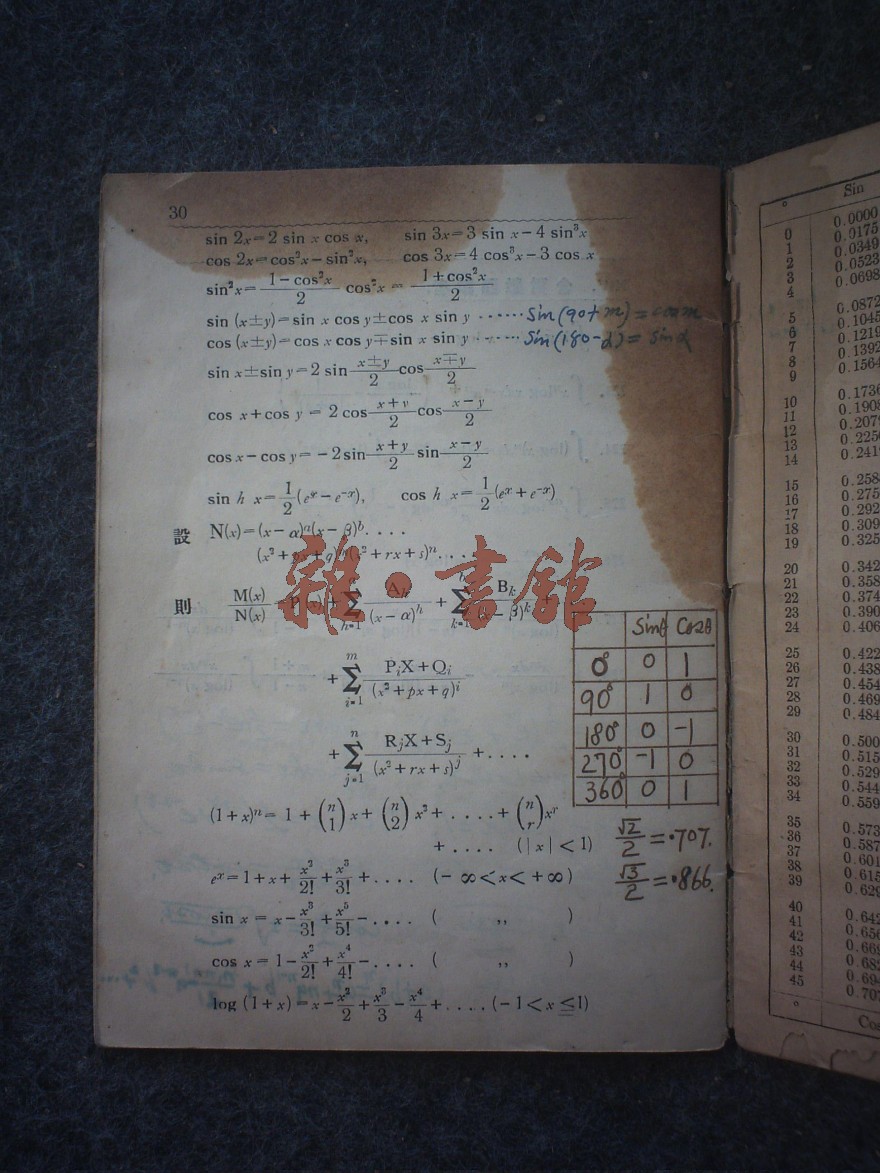 30
sin 2x=2 sin x cos x, sin 3x=3 sin x−4 sin³x
cos 2x=cos²x−sin²x, cos 3x=4 cos³x−3 cos x
sin²x=(1−cos²x)/2 cos²x=(1+cos²x)/2
sin (x±y)=sin x cos y±cos x sin y ······Sin(90+m)=cosm
cos (x±y)=cos x cos y∓sin x sin y ······Sin(180-α)=Sinα
sin x±sin y=2 sin (x±y)/2 cos (x∓y)/2
cos x+cos y = 2 cos (x+y)/2 cos (x−y)/2
cos x−cos y=−2 sin (x+y)/2 sin (x−y)/2
sin h x=1/2(eˣ−e⁻ˣ), cos h x=1/2(eˣ+e⁻ˣ)
設 N(x)=(x−α)ᵃ(x−β)ᵇ....
(x²+px+q) (x²+rx+s)ⁿ....
雜·書館
則 M(x)/N(x) + ∑ h=1 Aₕ/(x−α)ʰ + ∑ k=1 Bₖ/(x−β)ᵏ
+ ∑ i=1 m (PᵢX+Qᵢ)/(x²+px+q)ⁱ
+ ∑ j=1 n (RⱼX+Sⱼ)/(x²+rx+s)ʲ +....
(1+x)ⁿ= 1+(n 1)x+(n 2)x²+....+(n r)xʳ
+.... (|x|<1)
eˣ=1+x+x²/2!+x³/3!+.... (−∞<x<+∞)
sin x = x−x³/3!+x⁵/5!−.... ( ,, )
cos x = 1−x²/2!+x⁴/4!−.... ( ,, )
log (1+x)=x−x²/2+x³/3−x⁴/4+....(−1<x≦1)
Sinθ Cosθ
0° 0 1
90° 1 0
180° 0 -1
270° -1 0
360° 0 1
√2/2=·707.
√3/2=·866.
° Sin
0 0.0000
1 0.0175
2 0.0349
3 0.0523
4 0.0698
5 0.0872
6 0.1045
7 0.1219
8 0.1392
9 0.1564
10 0.1736
11 0.1908
12 0.2079
13 0.2250
14 0.2419
15 0.258
16 0.275
17 0.292
18 0.309
19 0.325
20 0.342
21 0.358
22 0.374
23 0.390
24 0.406
25 0.422
26 0.438
27 0.454
28 0.469
29 0.484
30 0.500
31 0.515
32 0.529
33 0.544
34 0.559
35 0.573
36 0.587
37 0.601
38 0.615
39 0.629
40 0.642
41 0.656
42 0.669
43 0.68
44 0.69
45 0.70
° Cos